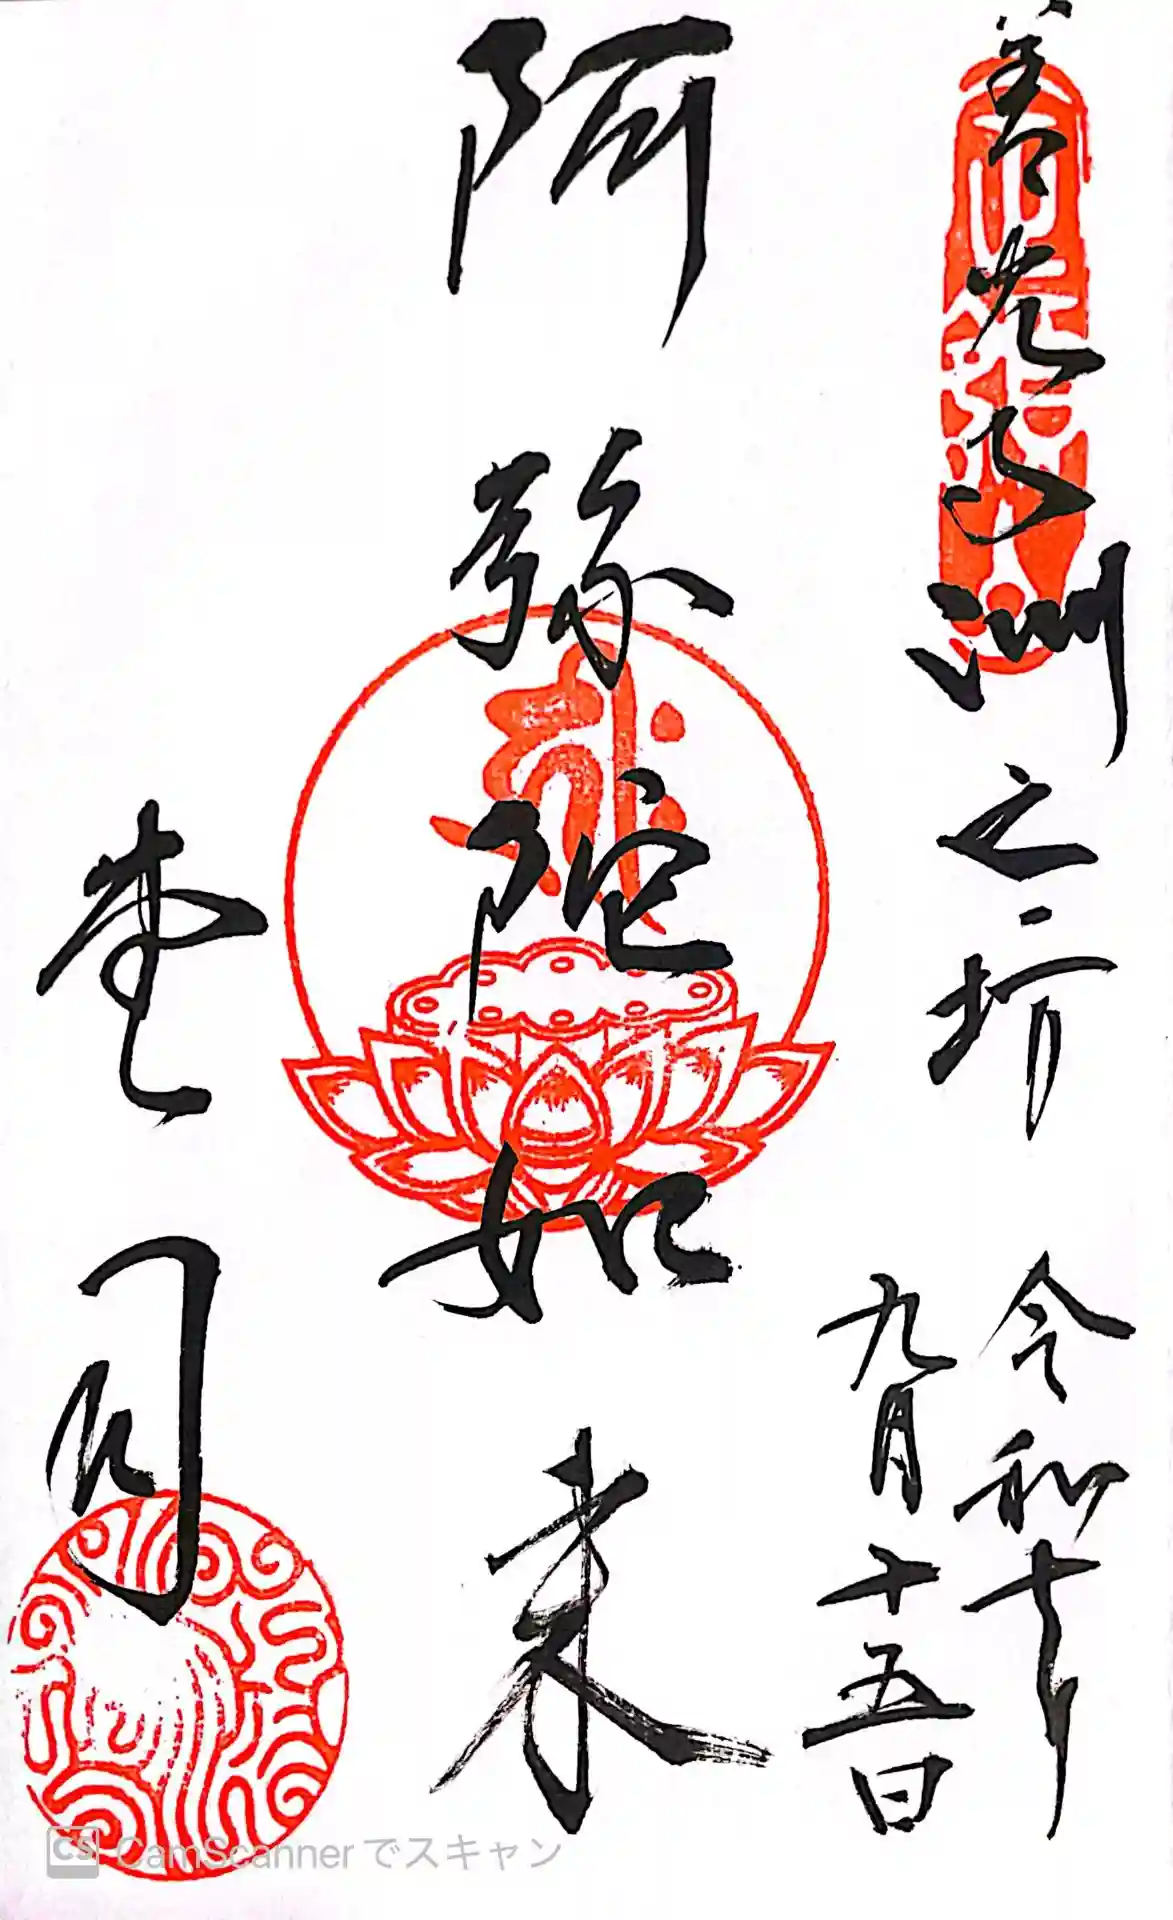 善光寺渕之坊
令和
九月十五日
阿弥陀如来
堂司
CS CamScannerでスキャン